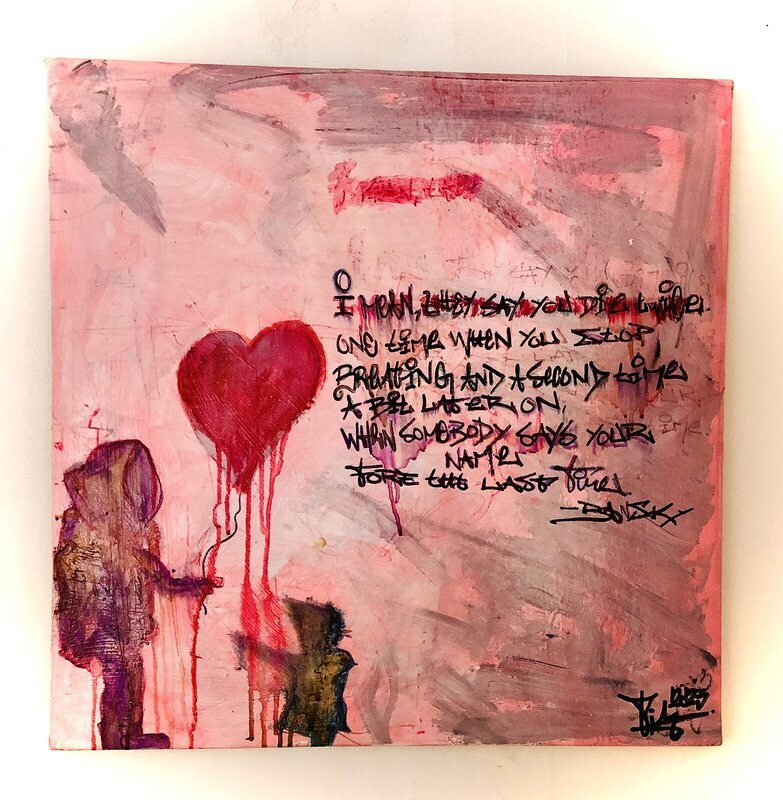 I MEAN, they SAY YOU Die twice.
ONE time WHEN YOU STOP
BREATING AND A SecOND time
A Bit LATER ON,
WHEN SOMEBODY SAYS YOUR
NAME
FORE the LAST Time